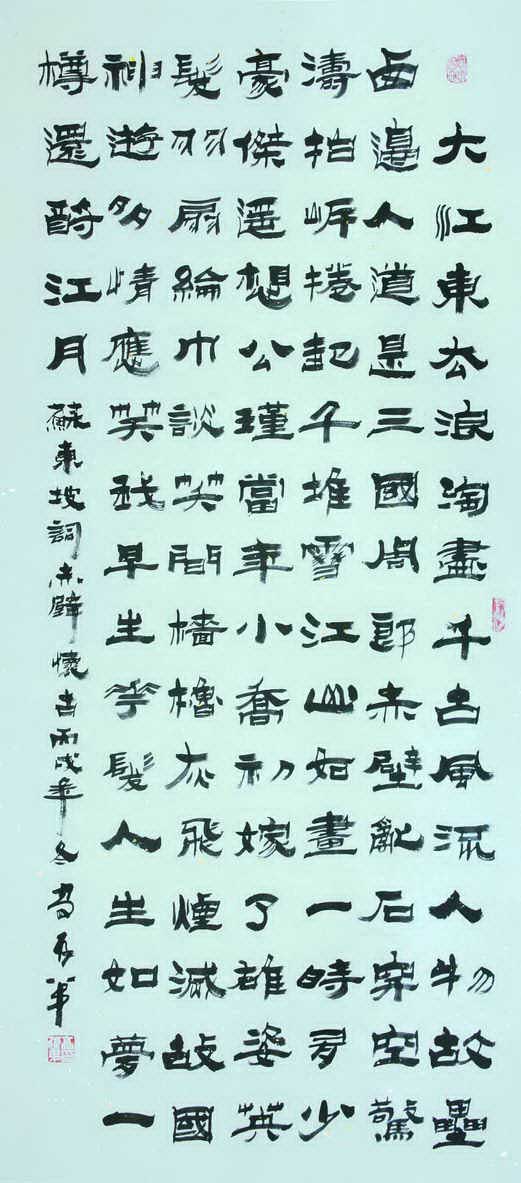 大江東去浪淘盡千古風流人物故壘
西邊人道是三國周郎赤壁亂石穿空驚
濤拍岸捲起千堆雪江山如畫一時多少
豪傑遥想公瑾當年小喬初嫁了雄姿英
髮羽扇綸巾談笑間檣櫓灰飛煙滅故國
神遊多情應笑我早生華髮人生如夢一
樽還酹江月 蘇東坡詞赤壁懷古丙戌年冬